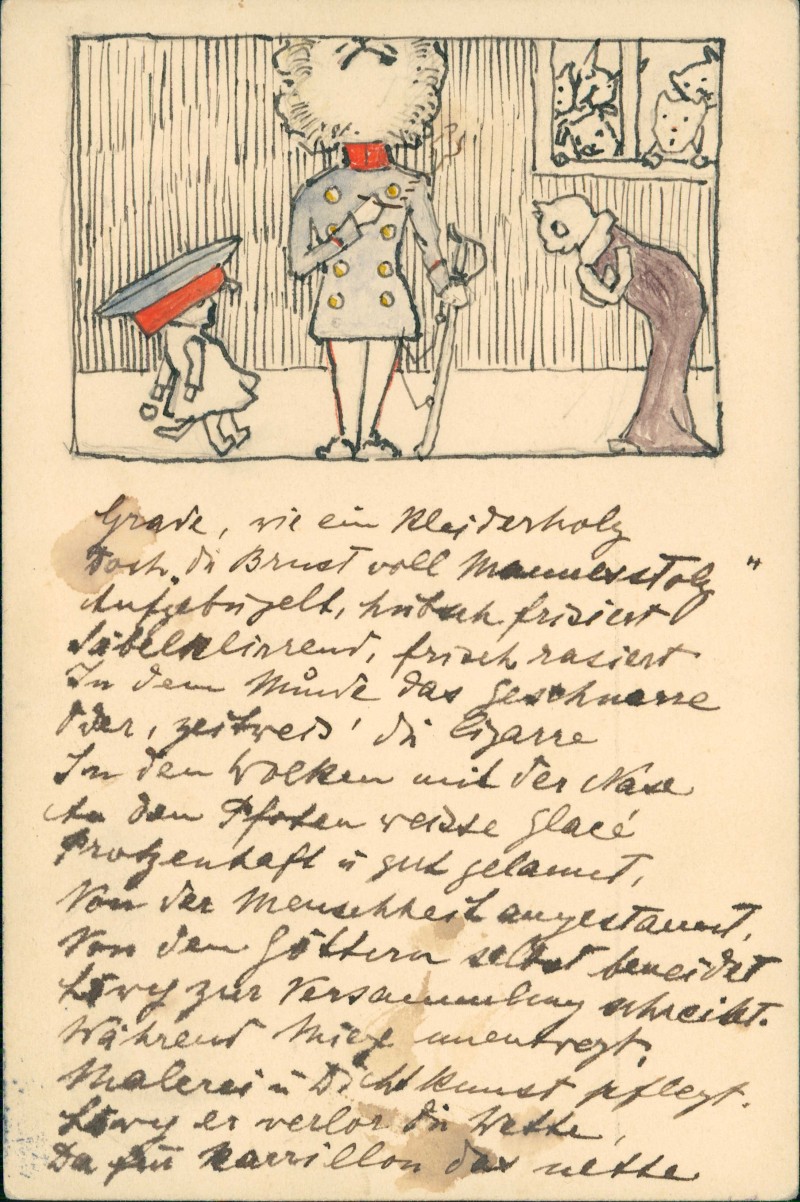 Grade, wie ein Kleiderholz
Doch "die Brust voll Mannesstolz"
Aufgebügelt, hübsch frisiert
Säbelklirrend, frisch rasiert
In dem Munde das Geschnarre
Oder, zeitweis' die Cigarre
In den Wolken mit der Nase
An den Pfoten weisse Glacé
Protzenhaft u gut gelaunt,
Von der Menschheit angestaunt,
Von den Göttern selbst beneidet
Löwy zur Versammlung schreitet.
Während Mieze unentwegt,
Malerei u Dichtkunst pflegt.
Löwy er verlor die Wette,
Da für Karrillon das nette